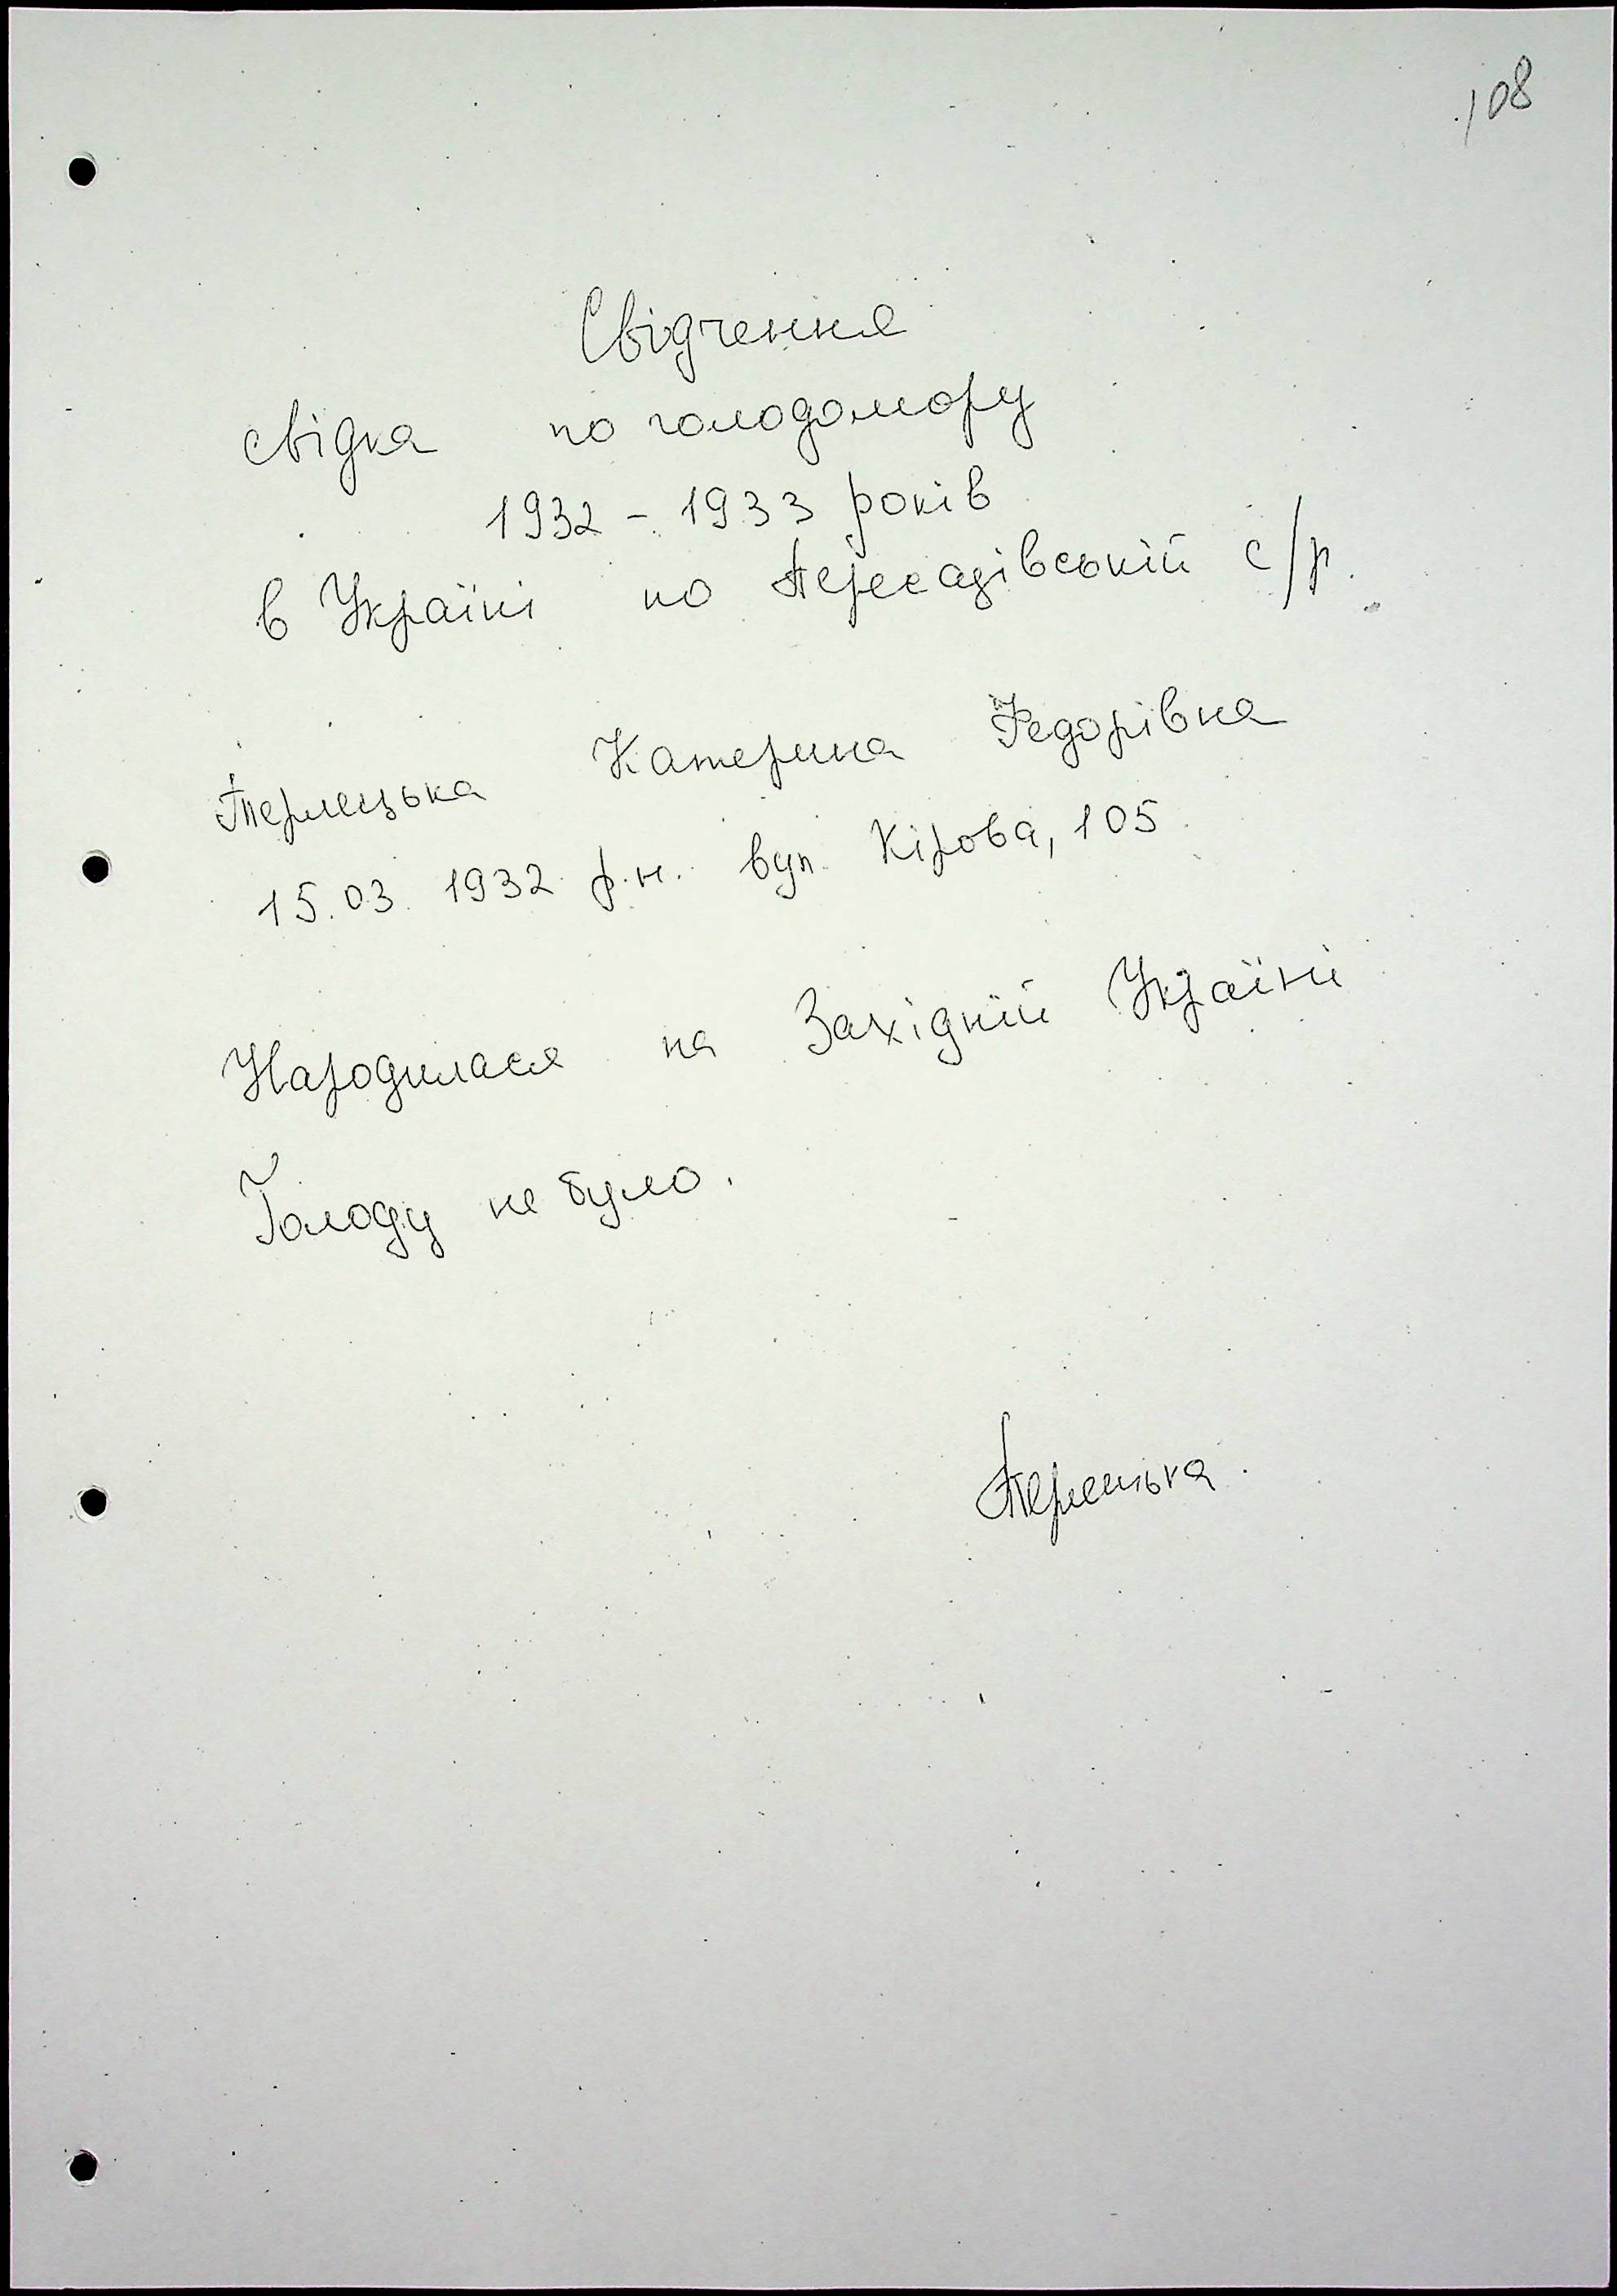 108
Свідчення
свідка по голодомору
1932 - 1933 років
в Україні по Пересадівській с/р.
Терлецька Катерина Федорівна
15.03. 1932 р.н. вул. Кірова, 105
Народилася на Західній Україні
Голоду не було.
Терлецька